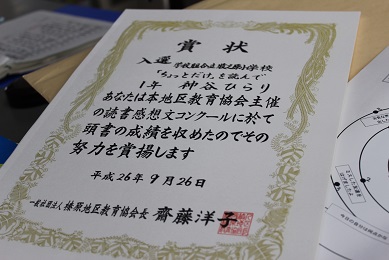 賞状
入選
「ちょっとだけ」を読んで
1年 神谷ひらり
あなたは本地区教育協会主催
の読書感想文コンクールに於て
頭書の成績を収めたのでその
努力を賞揚します
平成26年9月26日
一般社団法人 榛原地区教育協会長 齋藤洋子